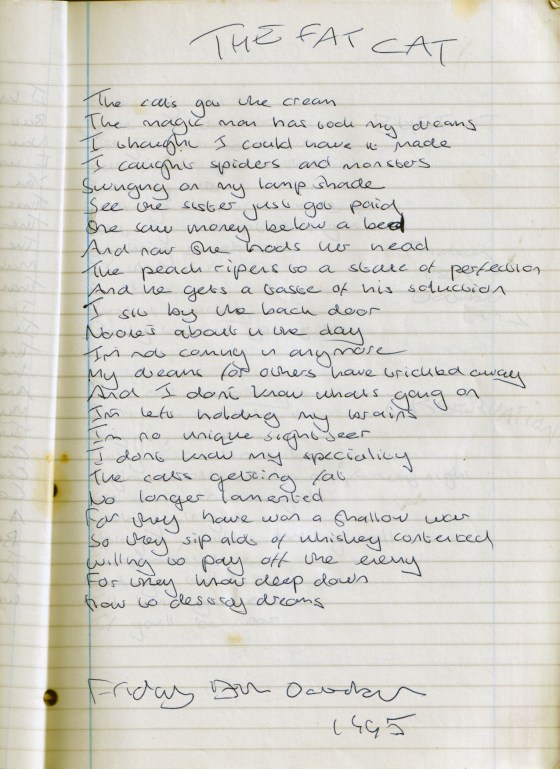 THE FAT CAT
The cats got the cream
The magic man has took my dreams
I thought I could have it made
I caught spiders and monsters
Swinging on my lamp shade
See the sister just got paid
She saw money below a bed
And now she holds her head
The peach ripens to a state of perfection
And he gets a taste of his seduction
I sit by the back door
about in the day
I'm not coming in anymore
My dreams for others have trickled away
And I don't know whats going on
I'm left holding my brains
I'm no unique sightseer
I dont know my speciality
The cats getting fat
No longer lamented
For they have won a shallow war
So they sip of whiskey contented
willing to pay off the enemy
For they know deep down
how to destroy dreams
Friday October
1995